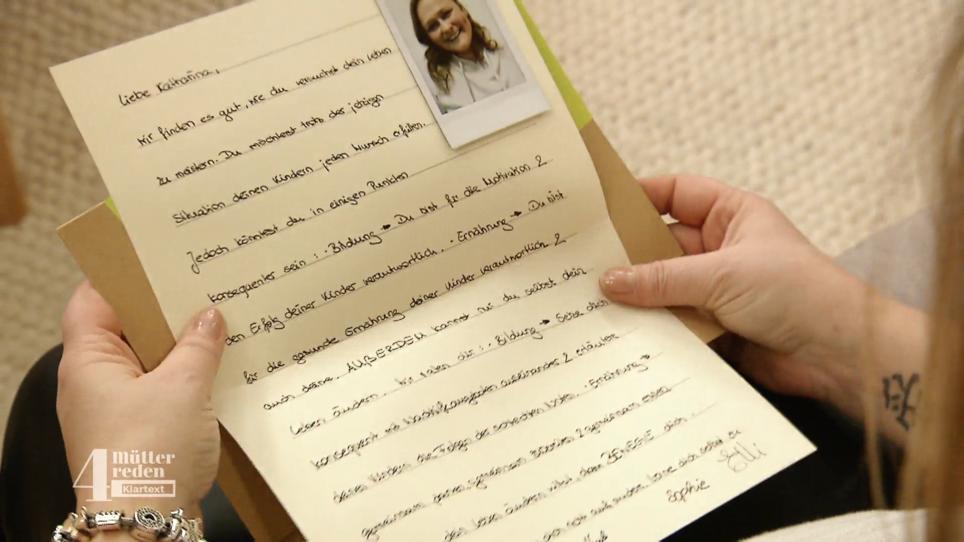 Liebe Katharina,
wir finden es gut, wie du versuchst dein Leben
zu meistern. Du möchtest trotz der jetzigen
Situation deinen Kindern jeden Wunsch erfüllen.
Jedoch könntest du in einigen Punkten
konsequenter sein: · Bildung → Du bist für die Motivation &
den Erfolg deiner Kinder verantwortlich. · Ernährung → Du bist
für die gesunde Ernährung deiner Kinder verantwortlich &
auch deine. AUẞERDEM kannst nur du selbst dein
Leben ändern. Wir raten dir: · Bildung → Setze dich
konsequent mit auseinander & erläutere
deinen Kindern die Folgen der schlechten Noten. · Ernährung →
gemeinsam gemeinsam & gemeinsam essen
dein Leben ändern willst, dann BEWEGE dich
Elli
Sophie
4 mütter
reden
Klartext